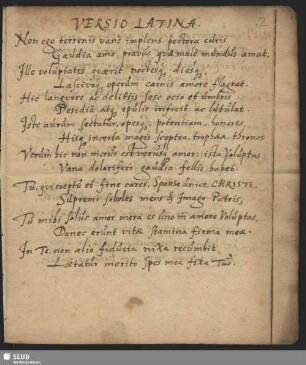 2
VERSIO LATINA.
Non ego terrenis vanè implens pectora curis
Gaudia amo, pravus quæ malè mundus amat.
Ille voluptates quærit noctesq; diesq;
Lascivos, operum carnis amore flagrat.
Hic languore ac delitiis sese ocio et umbris
Perdia atq; epulis inficit ac lutulat.
Iste aurum sectatur, opesq; potentiam, honores,
Hisq; incerta magis sceptra, trophæa, thronos
Verùm hic non merus est versusq; amor: ista Voluptas
Vana doloriferi gaudia fellis habet.
Tu, qui cœptu et fine cares, Sponse unice CHRISTE,
Supremi soboles mens & Imago Patris,
Tu mihi solus amor mera es uno in amore Voluptas,
Donec erunt vitæ stamina firma meæ.
In Te, non alio fiducia nixa recumbit,
Lætatur meritò Spes mea fixa Tuo.
SLUB